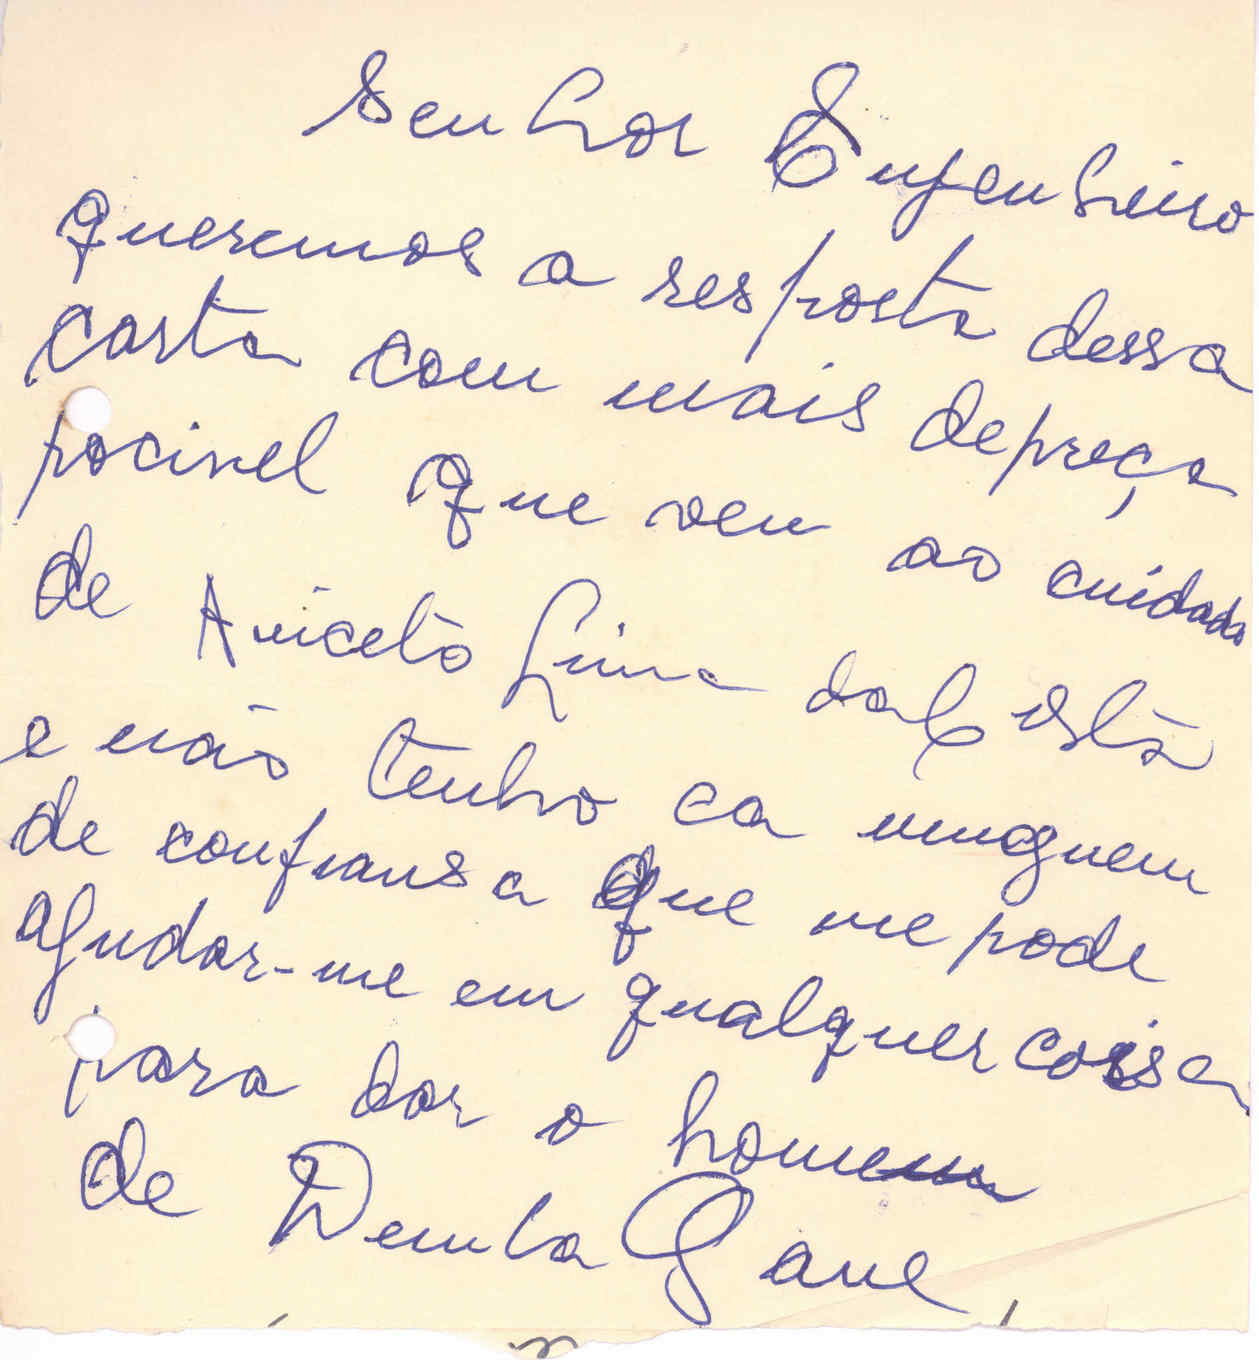 Senhor Engenheiro
queremos a resposta dessa
carta com mais depreça
pocivel que ven ao cuidado
de Aniceto Lima da Costa
e não tenho ca ninguem
de confiansa que me pode
ajudar-me em qualquer coisa
para dar o homem
de Demba Gane,